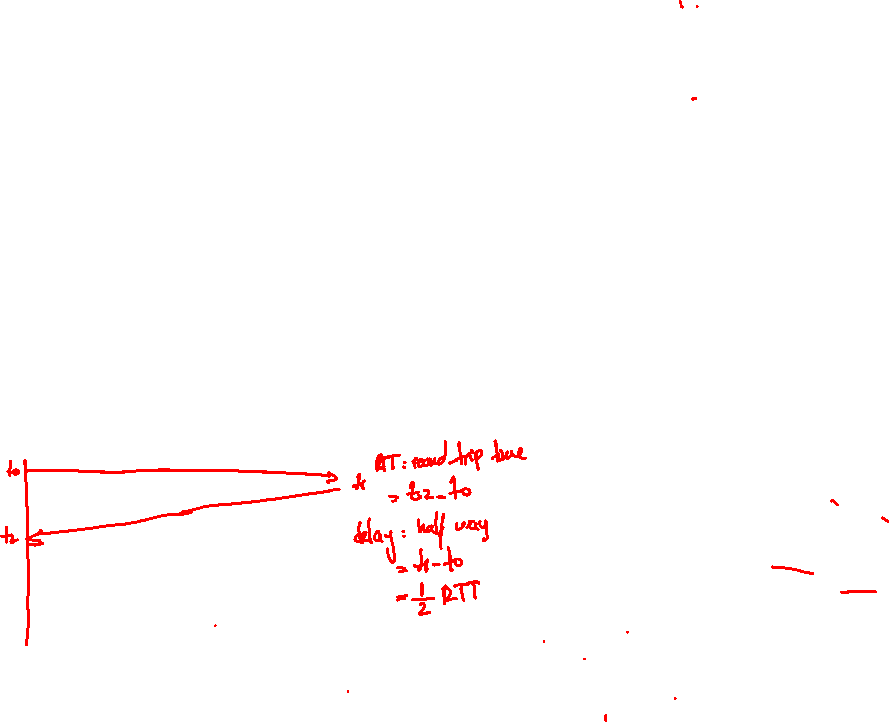 t0
t1
RTT: round trip time
= t2 - t0
t2
delay: half way
= t1 - t0
= 1/2 RTT